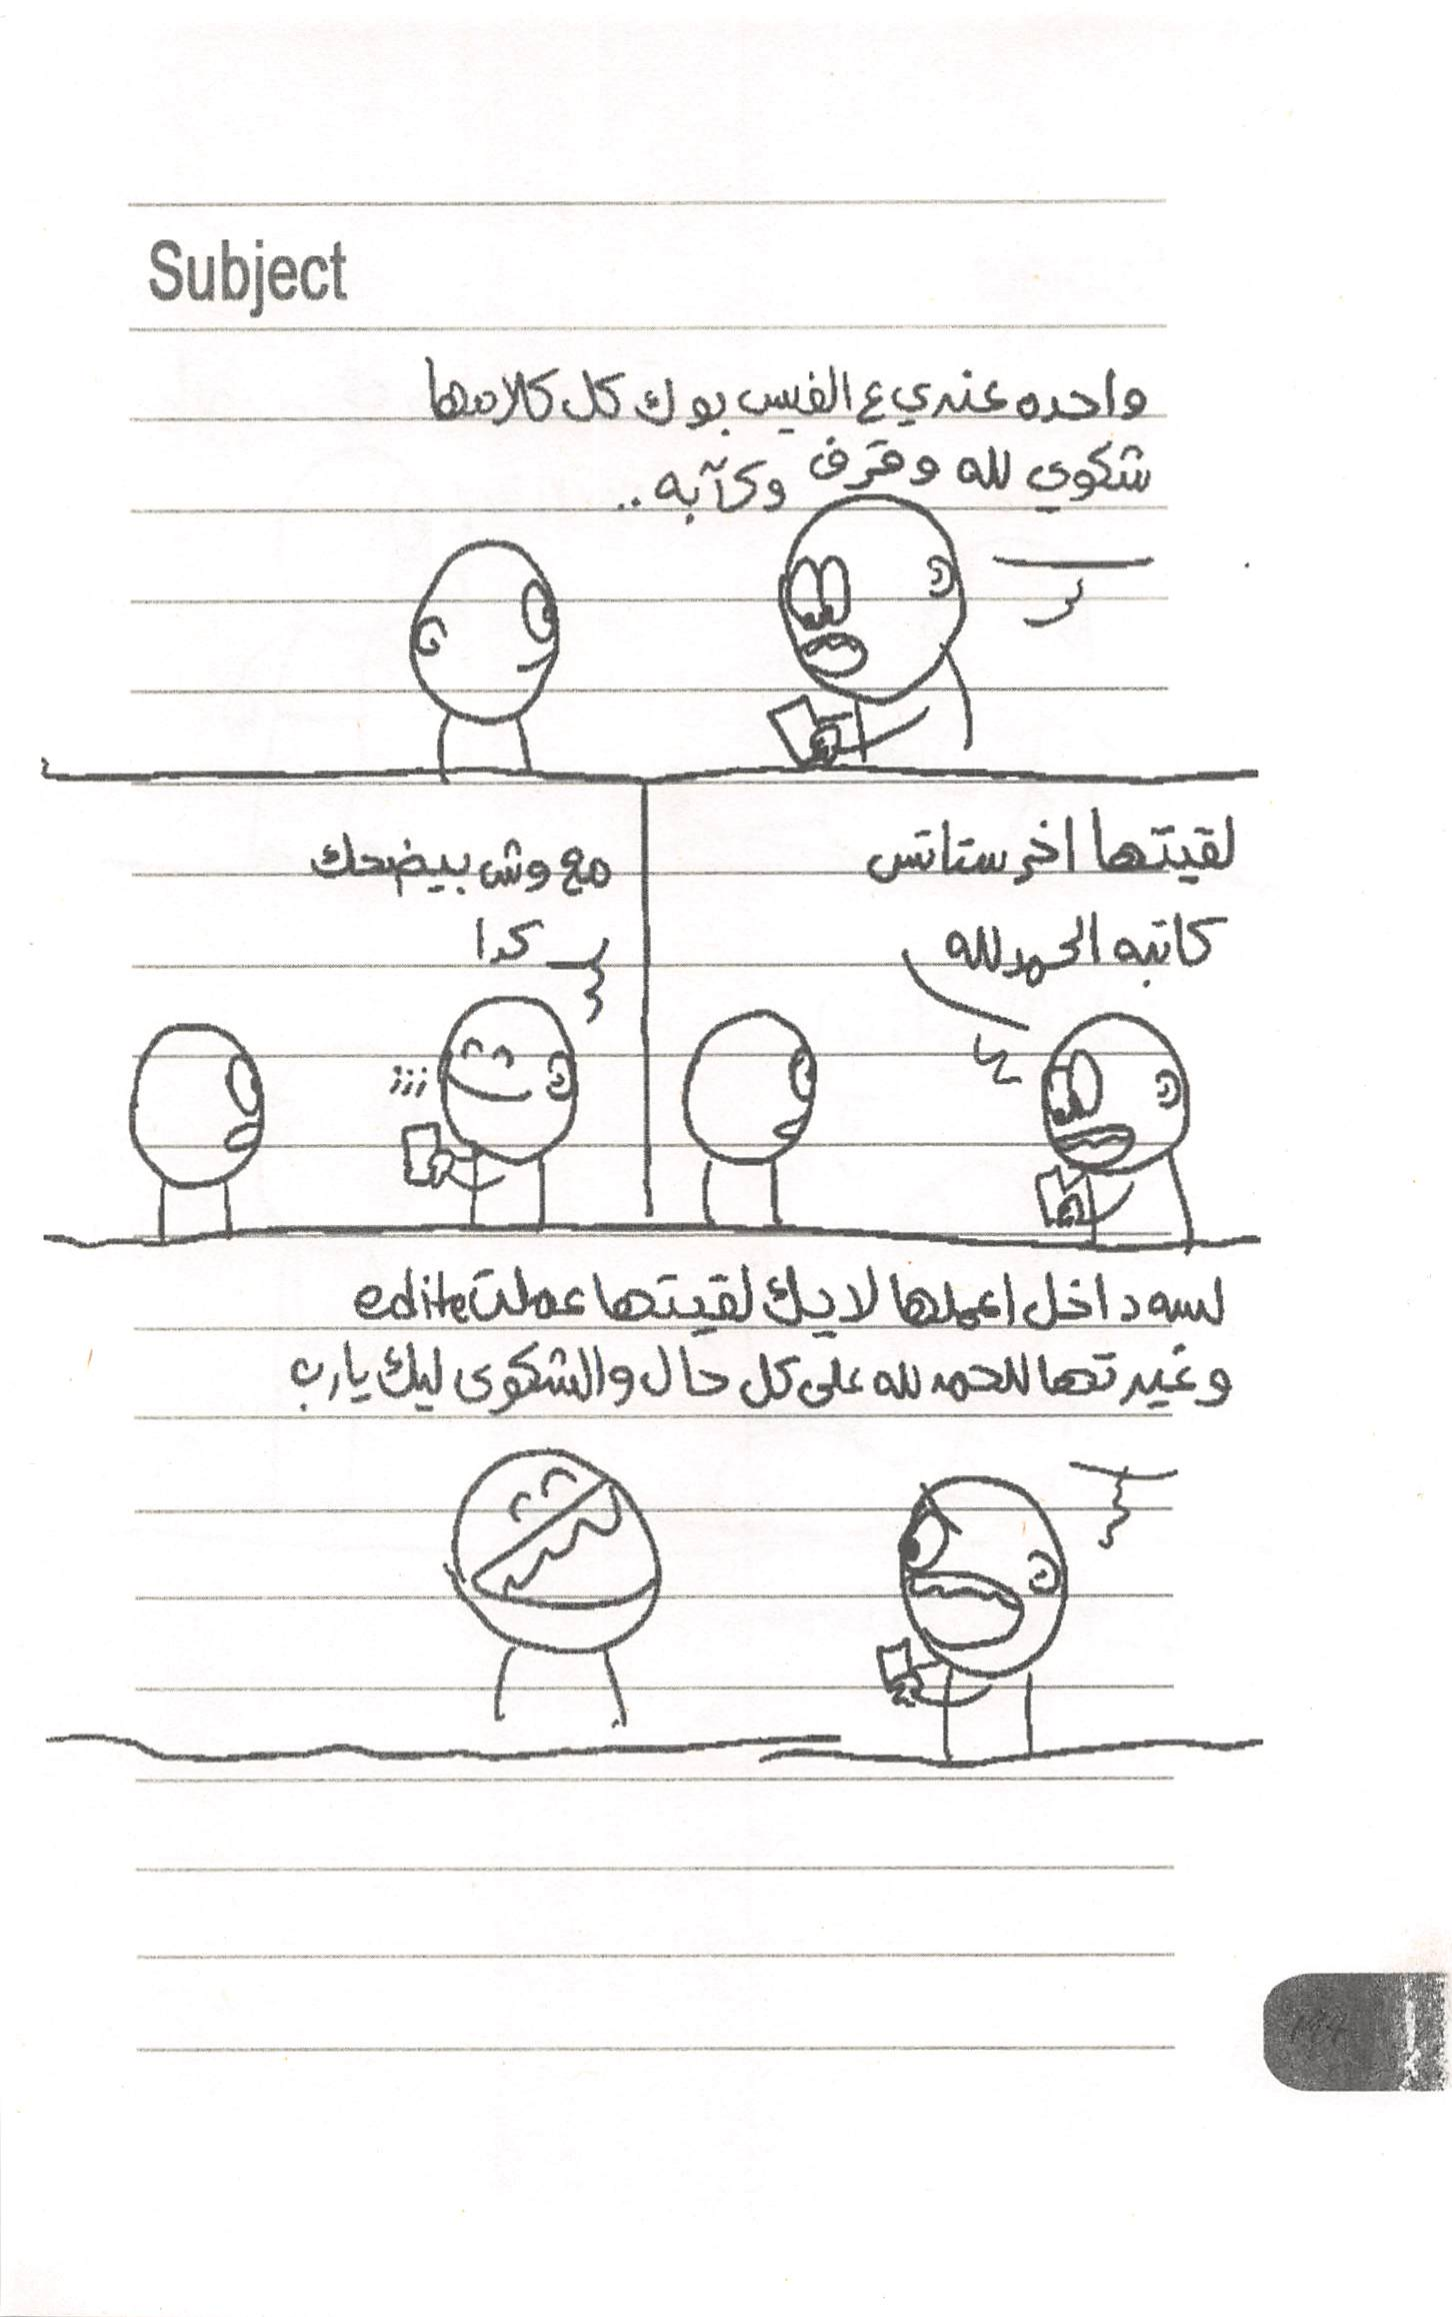 Subject
واحده عندي ع الفيس بوك كل كلامها
شكوي لله وقرف وكآبه ..
لقيتها اخر ستاتس
كاتبه الحمدلله
مع وش بيضحك
كدا
ززز
لسه داخل اعملها لايك لقيتها عملت edite
وغيرتها للحمد لله على كل حال والشكوى ليك يارب